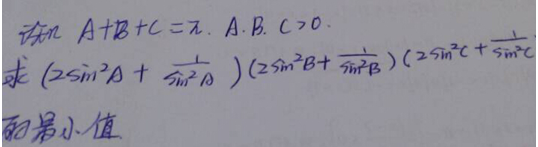 设 A+B+C=π. A.B.C>0.
求 (2sin²A + 1/sin²A)(2sin²B + 1/sin²B)(2sin²C + 1/sin²C
的最小值.